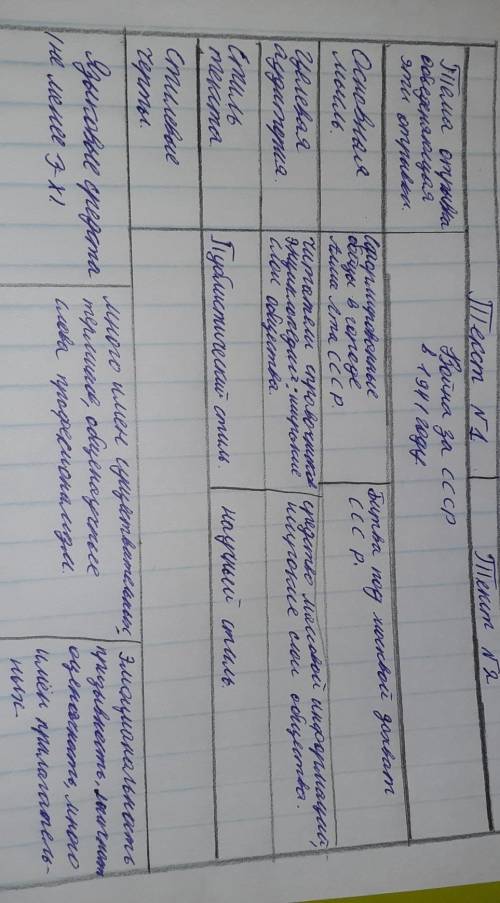 Текст №1
Текст №2
Тема отрывка
объединяющая
эти отрывки.
Война за СССР
в 1941 году
Основная
мысль.
обеды в городе
Алма Ата СССР.
Битва под москвой захват
СССР.
Целевая
аудитория.
читатели справочников
энциклопедий - широкие
слои общества.
средство массовой информации,
широкие слои общества.
Стиль
текста
Публистический стиль.
научный стиль.
Стилевые
черты.
Языковые средства
(не менее 3-х)
много имен существительных,
терминов, общенаучные
слова профессионализм.
Эмоциональность
призывность,
оценочность, много
имён прилагатель-
ных